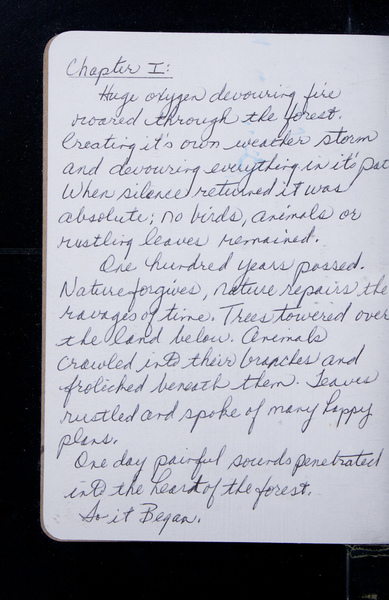 Chapter I:
Huge oxygen devouring fire
roared through the forest.
Creating it's own weather storm
and devouring everything in it's pat
When silence returned it was
absolute; no birds, animals or
rustling leaves remained.
One hundred years passed.
Nature forgives, nature repairs the
ravages of time. Trees towered over
the land below. Animals
crawled into their branches and
frolicked beneath them. Leaves
rustled and spoke of many happy
plans.
One day painful sounds penetrated
into the heart of the forest.
So it Began.